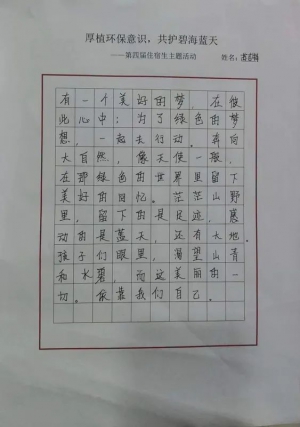 厚植环保意识，共护碧海蓝天
——第四届住宿生主题活动
姓名：
有一个美好的梦，在彼
此心中；为了绿色的梦
想，一起去行动。奔向
大自然，像天使一般，
在那绿色的世界里留下
美好的回忆。茫茫山野
里，留下的是足迹，感
动的是蓝天，还有大地。
孩子们眼里，渴望山青
和水碧，而这美丽的一
切。依靠我们自己。